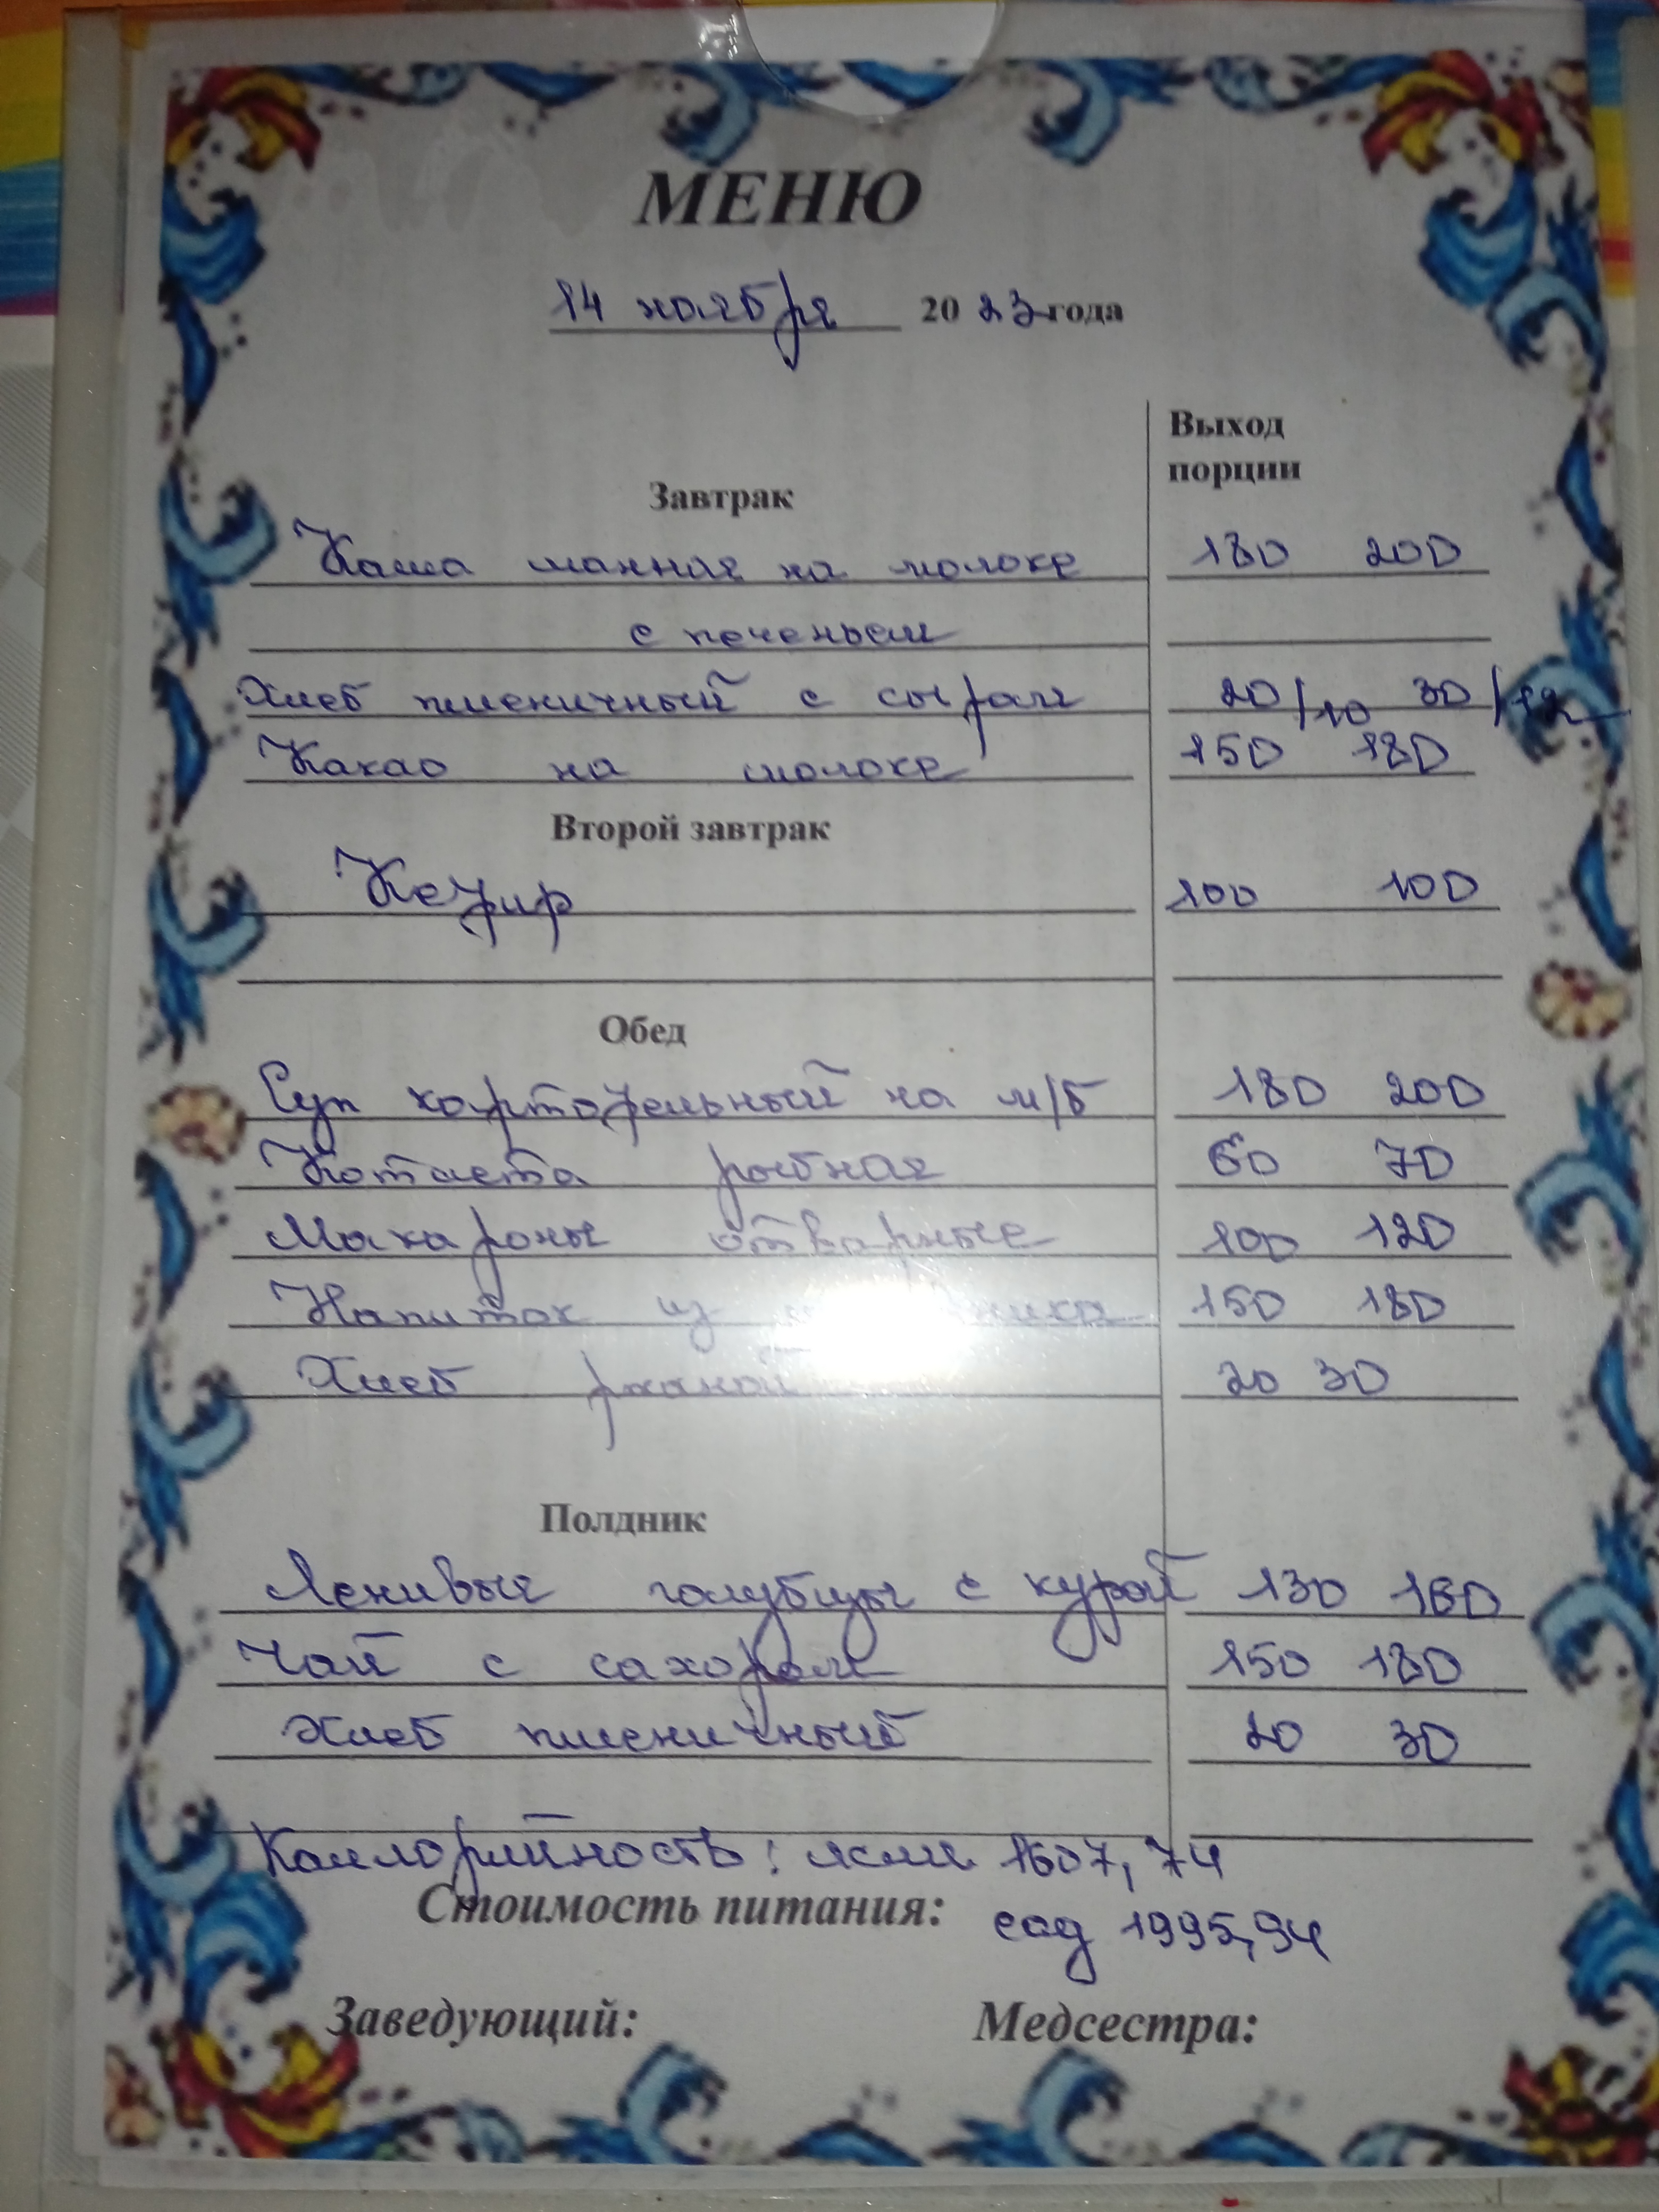 МЕНЮ
14 ноября 2023 года
Выход
порции
Завтрак
Каша манная на молоке 180 200
с печеньем
Хлеб пшеничный с сыром 20/10 30/12
Какао на молоке 150 180
Второй завтрак
Кефир 100 100
Обед
Суп картофельный на м/б 180 200
Котлета рыбная 60 70
Макароны отварные 100 120
Напиток из 150 180
Хлеб ржаной 20 30
Полдник
Ленивые голубцы с курой 130 160
Чай с сахаром 150 180
Хлеб пшеничный 20 30
Каллорийность: ясли 1607,74
Стоимость питания: сад 1995,94
Заведующий: Медсестра: